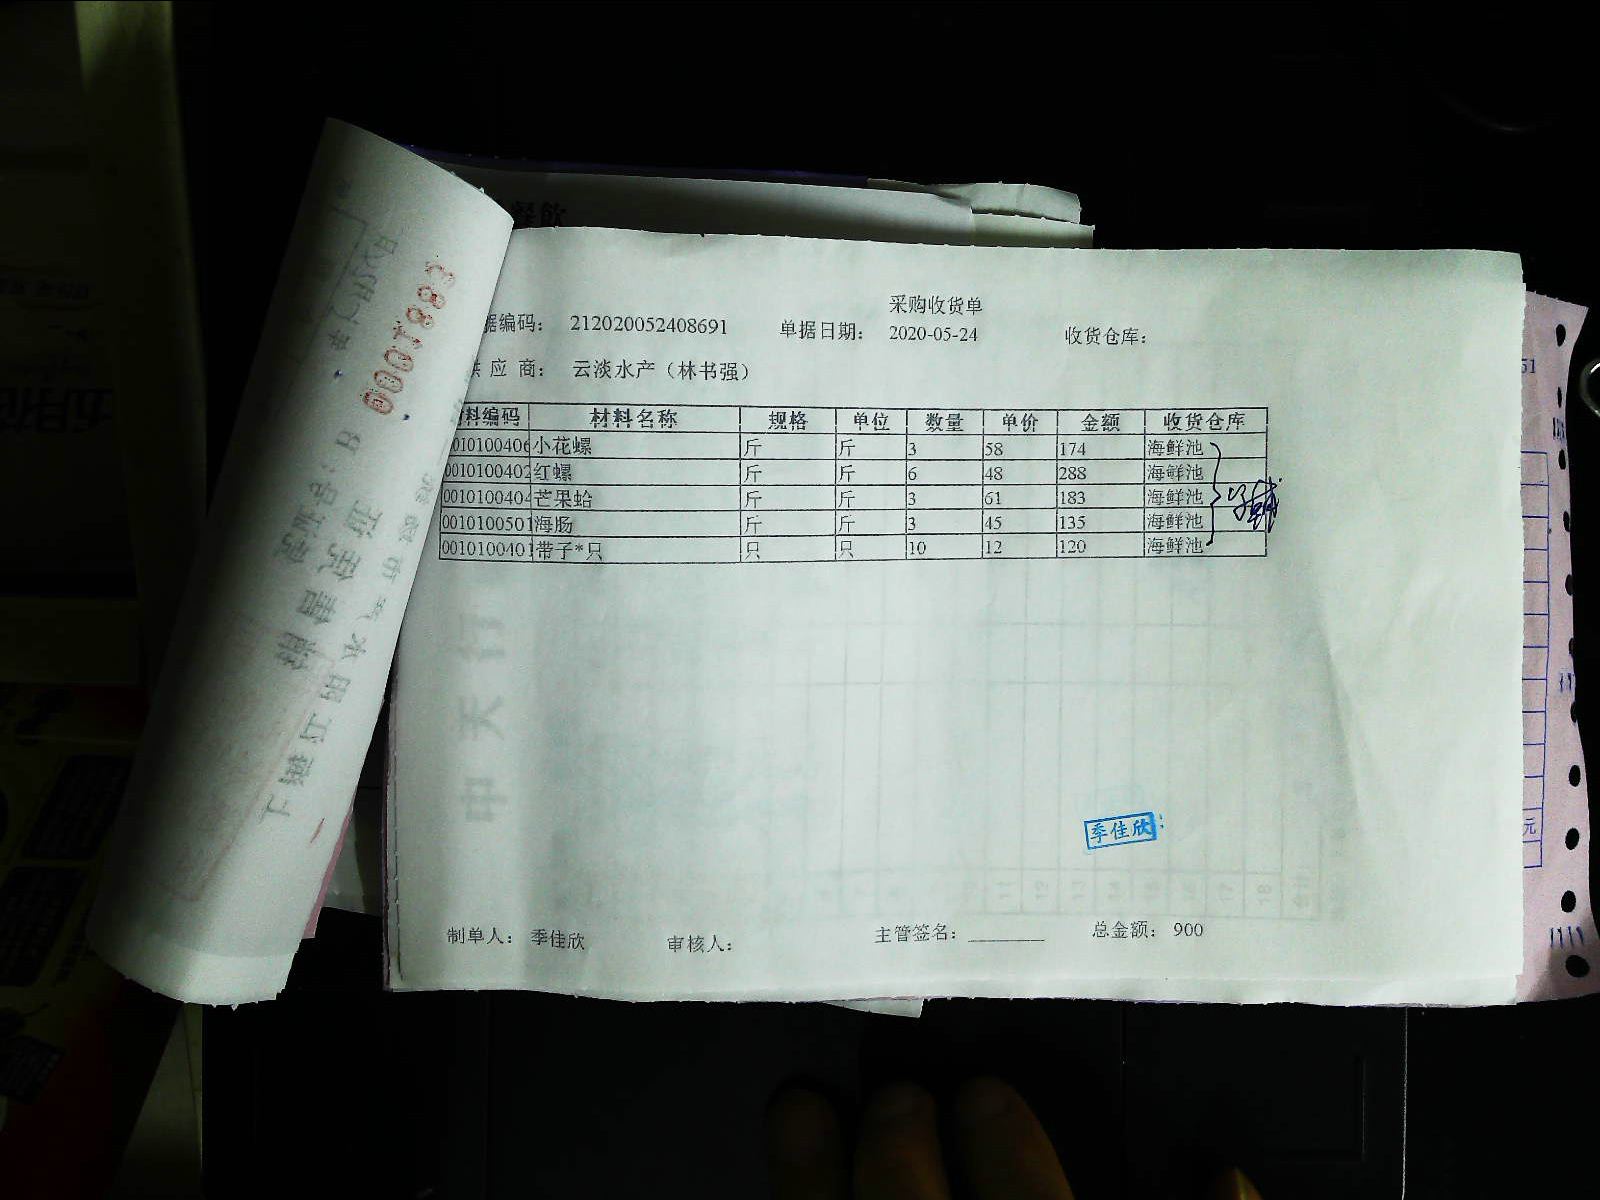 餐飲
0001883
采购收货单
据编码： 212020052408691 单据日期： 2020-05-24 收货仓库：
供应商： 云淡水产（林书强）
材料编码 材料名称 规格 单位 数量 单价 金额 收货仓库
0010100406 小花螺 斤 斤 3 58 174 海鲜池
0010100402 红螺 斤 斤 6 48 288 海鲜池
0010100404 芒果蛤 斤 斤 3 61 183 海鲜池
0010100501 海肠 斤 斤 3 45 135 海鲜池
0010100401 带子*只 只 只 10 12 120 海鲜池
季佳欣
制单人： 季佳欣 审核人： 主管签名： 总金额： 900
51
元